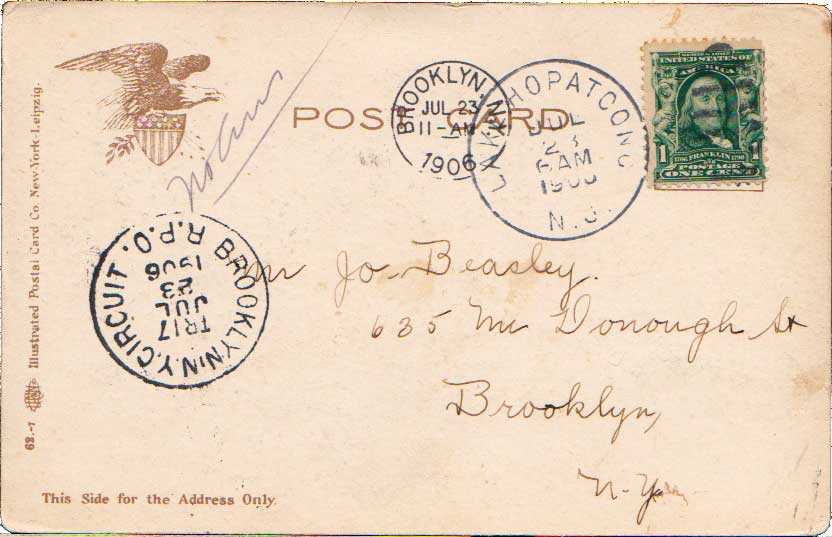 POST CARD
BROOKLYN, N.Y.
JUL 23
11-AM
1906
LAKE HOPATCONG
JUL
23
6AM
1906
N.J.
SERIES 1902
UNITED STATES OF
AMERICA
1 1706 FRANKLIN 1790 1
POSTAGE
ONE CENT
BROOKLYN, N.Y. CIRCUIT. R.P.O.
TR17
JUL
23
1906
Mr Jo Beasley.
635 Mc Donough St
Brooklyn,
N-Y-
Illustrated Postal Card Co. New-York-Leipzig.
62.-7
This Side for the Address Only.